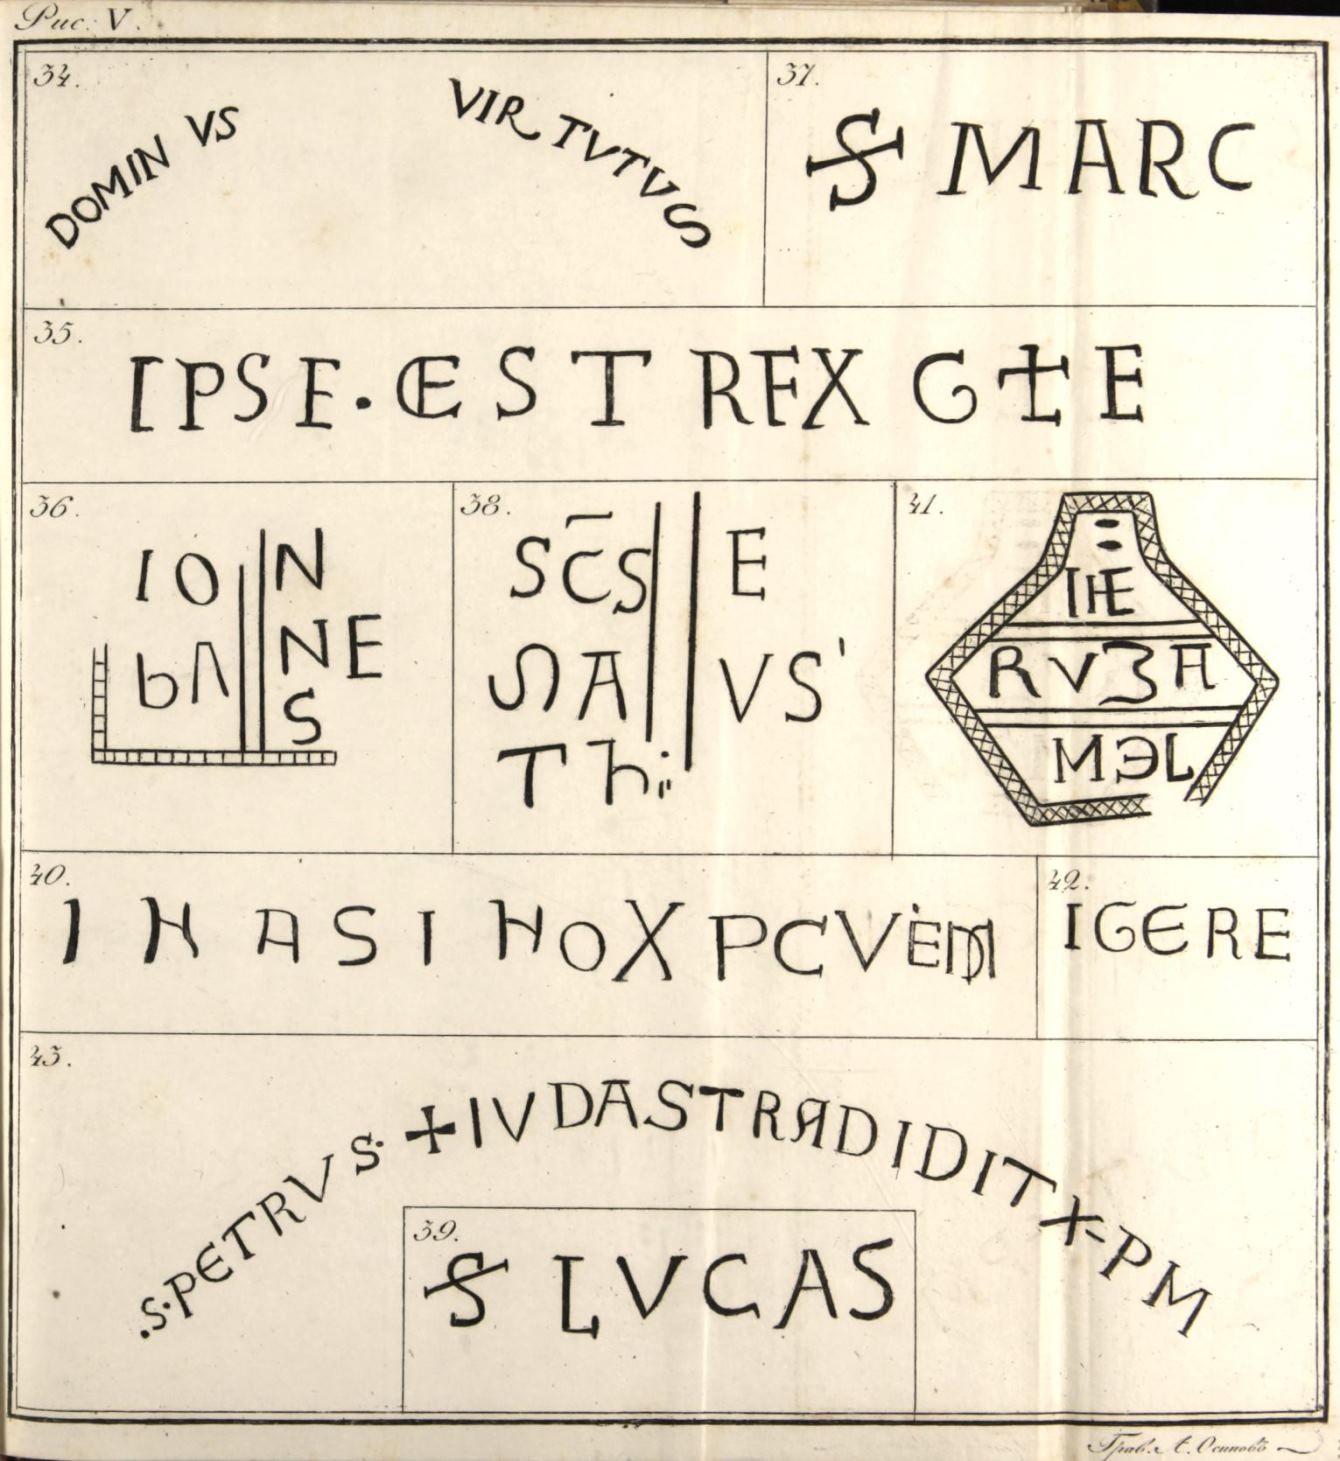 Рис. V.
34.
DOMIN VS VIR TVTVS
37.
S MARC
35.
IPSE. EST REX GLE
36.
IO N
bA NE
S
38.
SC̄S E
SA VS'
Thi
41.
IHE
RVZA
MƎL
40.
I H A S I H O X P C V E M
42.
IGERE
43.
.S.PETRVS. +IVDASTRADIDIT X-PM
39.
S LVCAS
Грав. А. Осиповъ